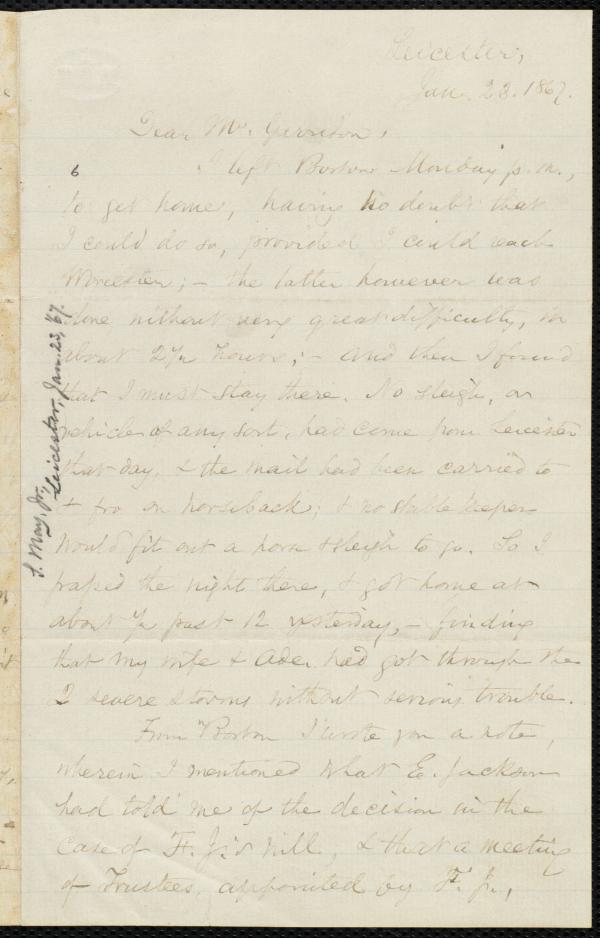 Leicester,
Jan. 23. 1867.
Dear Mr. Garrison,
6
I left Boston Monday p.m.,
to get home, having no doubt that
I could do so, provided I could reach
Worcester; – the latter however was
done without very great difficulty, in
about 2 1/2 hours; – and then I found
that I must stay there. No sleigh, or
vehicle of any sort, had come from Leicester
that day, & the mail had been carried to
& fro on horseback; & no stable keeper
would fit out a horse & sleigh to go. So I
passed the night there, & got home at
about 1/2 past 12 yesterday, – finding
that my wife & Adn. had got through the
2 severe storms without serious trouble.
From Boston I wrote you a note,
wherein I mentioned what E. Jackson
had told me of the decision in the
case of F. J.'s will, & that a meeting
of Trustees, appointed by F. J.,
S. May, Jr.,
Leicester, Jan. 23, '67.